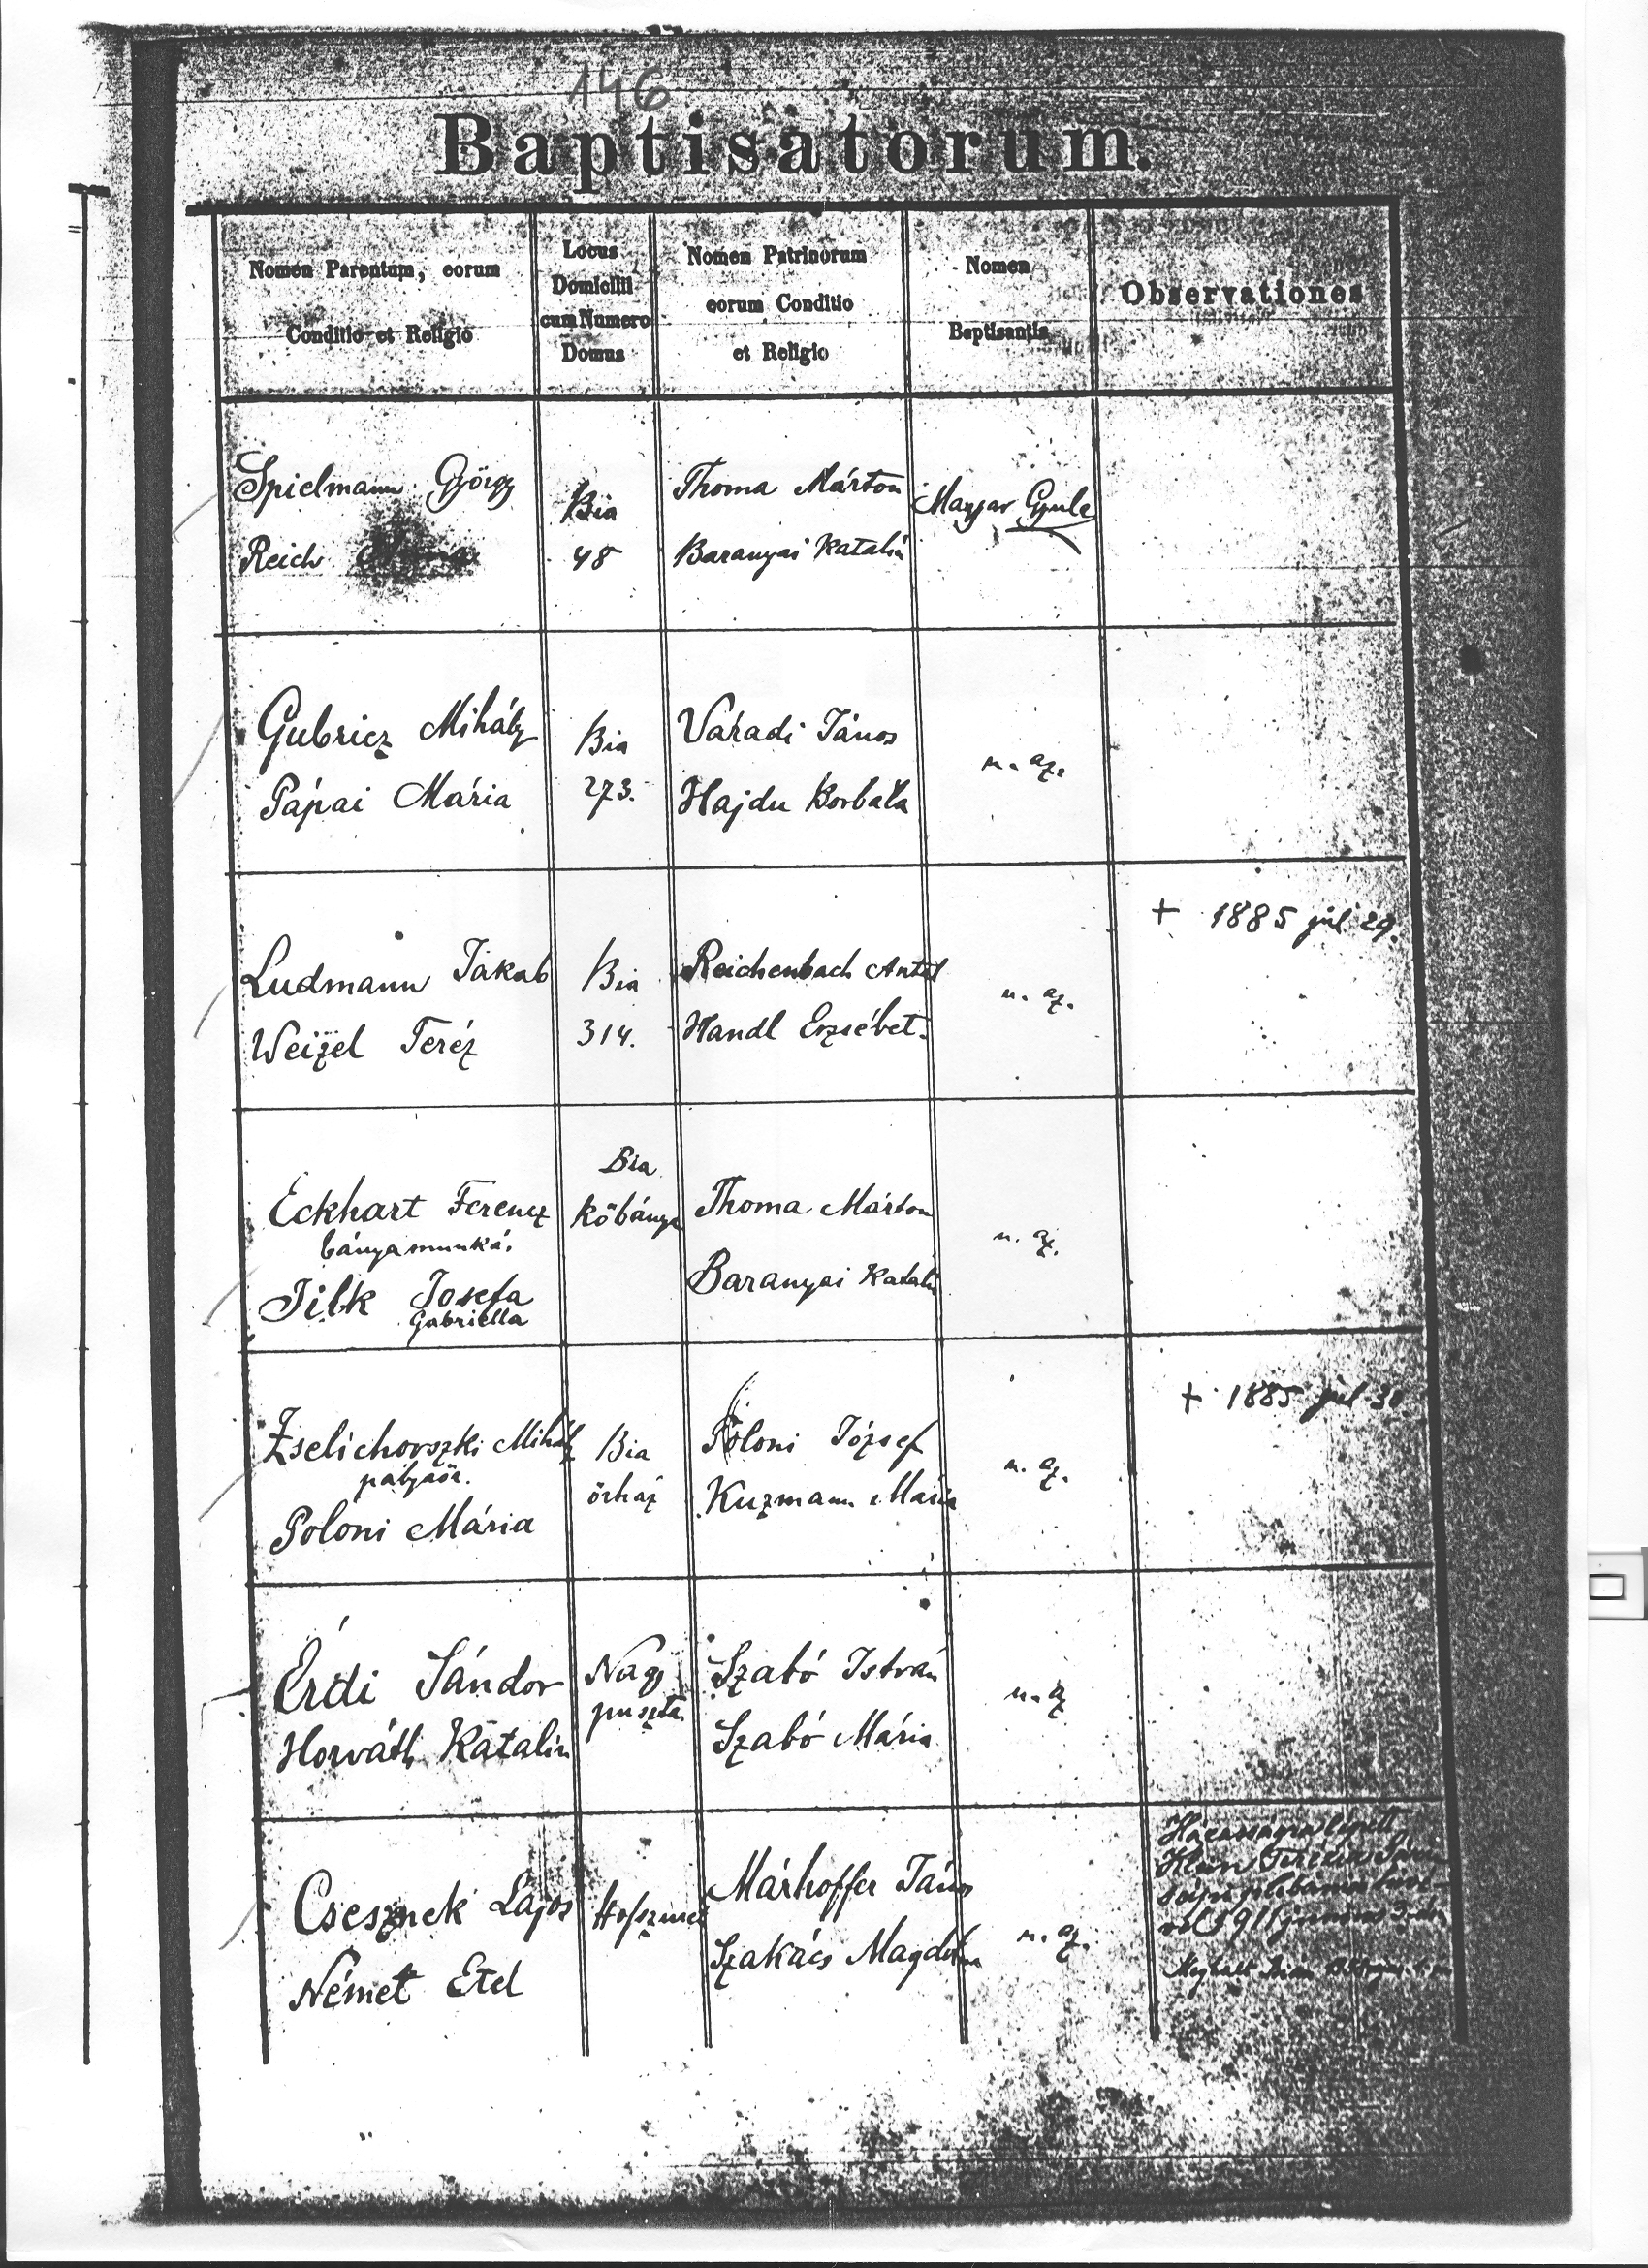 146
Baptisatorum.
Nomen Parentum, eorum
Conditio et Religio
Locus
Domicilii
cum Numero
Domus
Nomen Patrinorum
eorum Conditio
et Religio
Nomen
Baptisantis
Observationes
Spielmann György
Reich
Bia
48
Thoma Márton
Baranyai Katalin
Magyar Gyula
Gubricz Mihály
Pápai Mária
Bia
273.
Váradi János
Hajdu Borbála
u. az.
Ludmann Jakab
Weizel Teréz
Bia
314.
Reichenbach Antal
Handl Erzsébet.
u. az.
+ 1885 júl. 29.
Eckhart Ferencz
bányamunká.
Jilk Josefa
Gabriella
Bia
kőbánya
Thoma Márton
Baranyai Katalin
u. az.
Zselichovszki Mihály
pályaőr.
Poloni Mária
Bia
őrház
Poloni József
Kuzmann Mária
u. az.
+ 1885 júl 30
Érdi Sándor
Horváth Katalin
Nagy
puszta
Szabó István
Szabó Mária
u. az
Csesznek Lajos
Német Etel
Márhoffer János
Szakács Magdolna
u. az.
Házasságra lépett
Klein Terézia
1911 június 3.